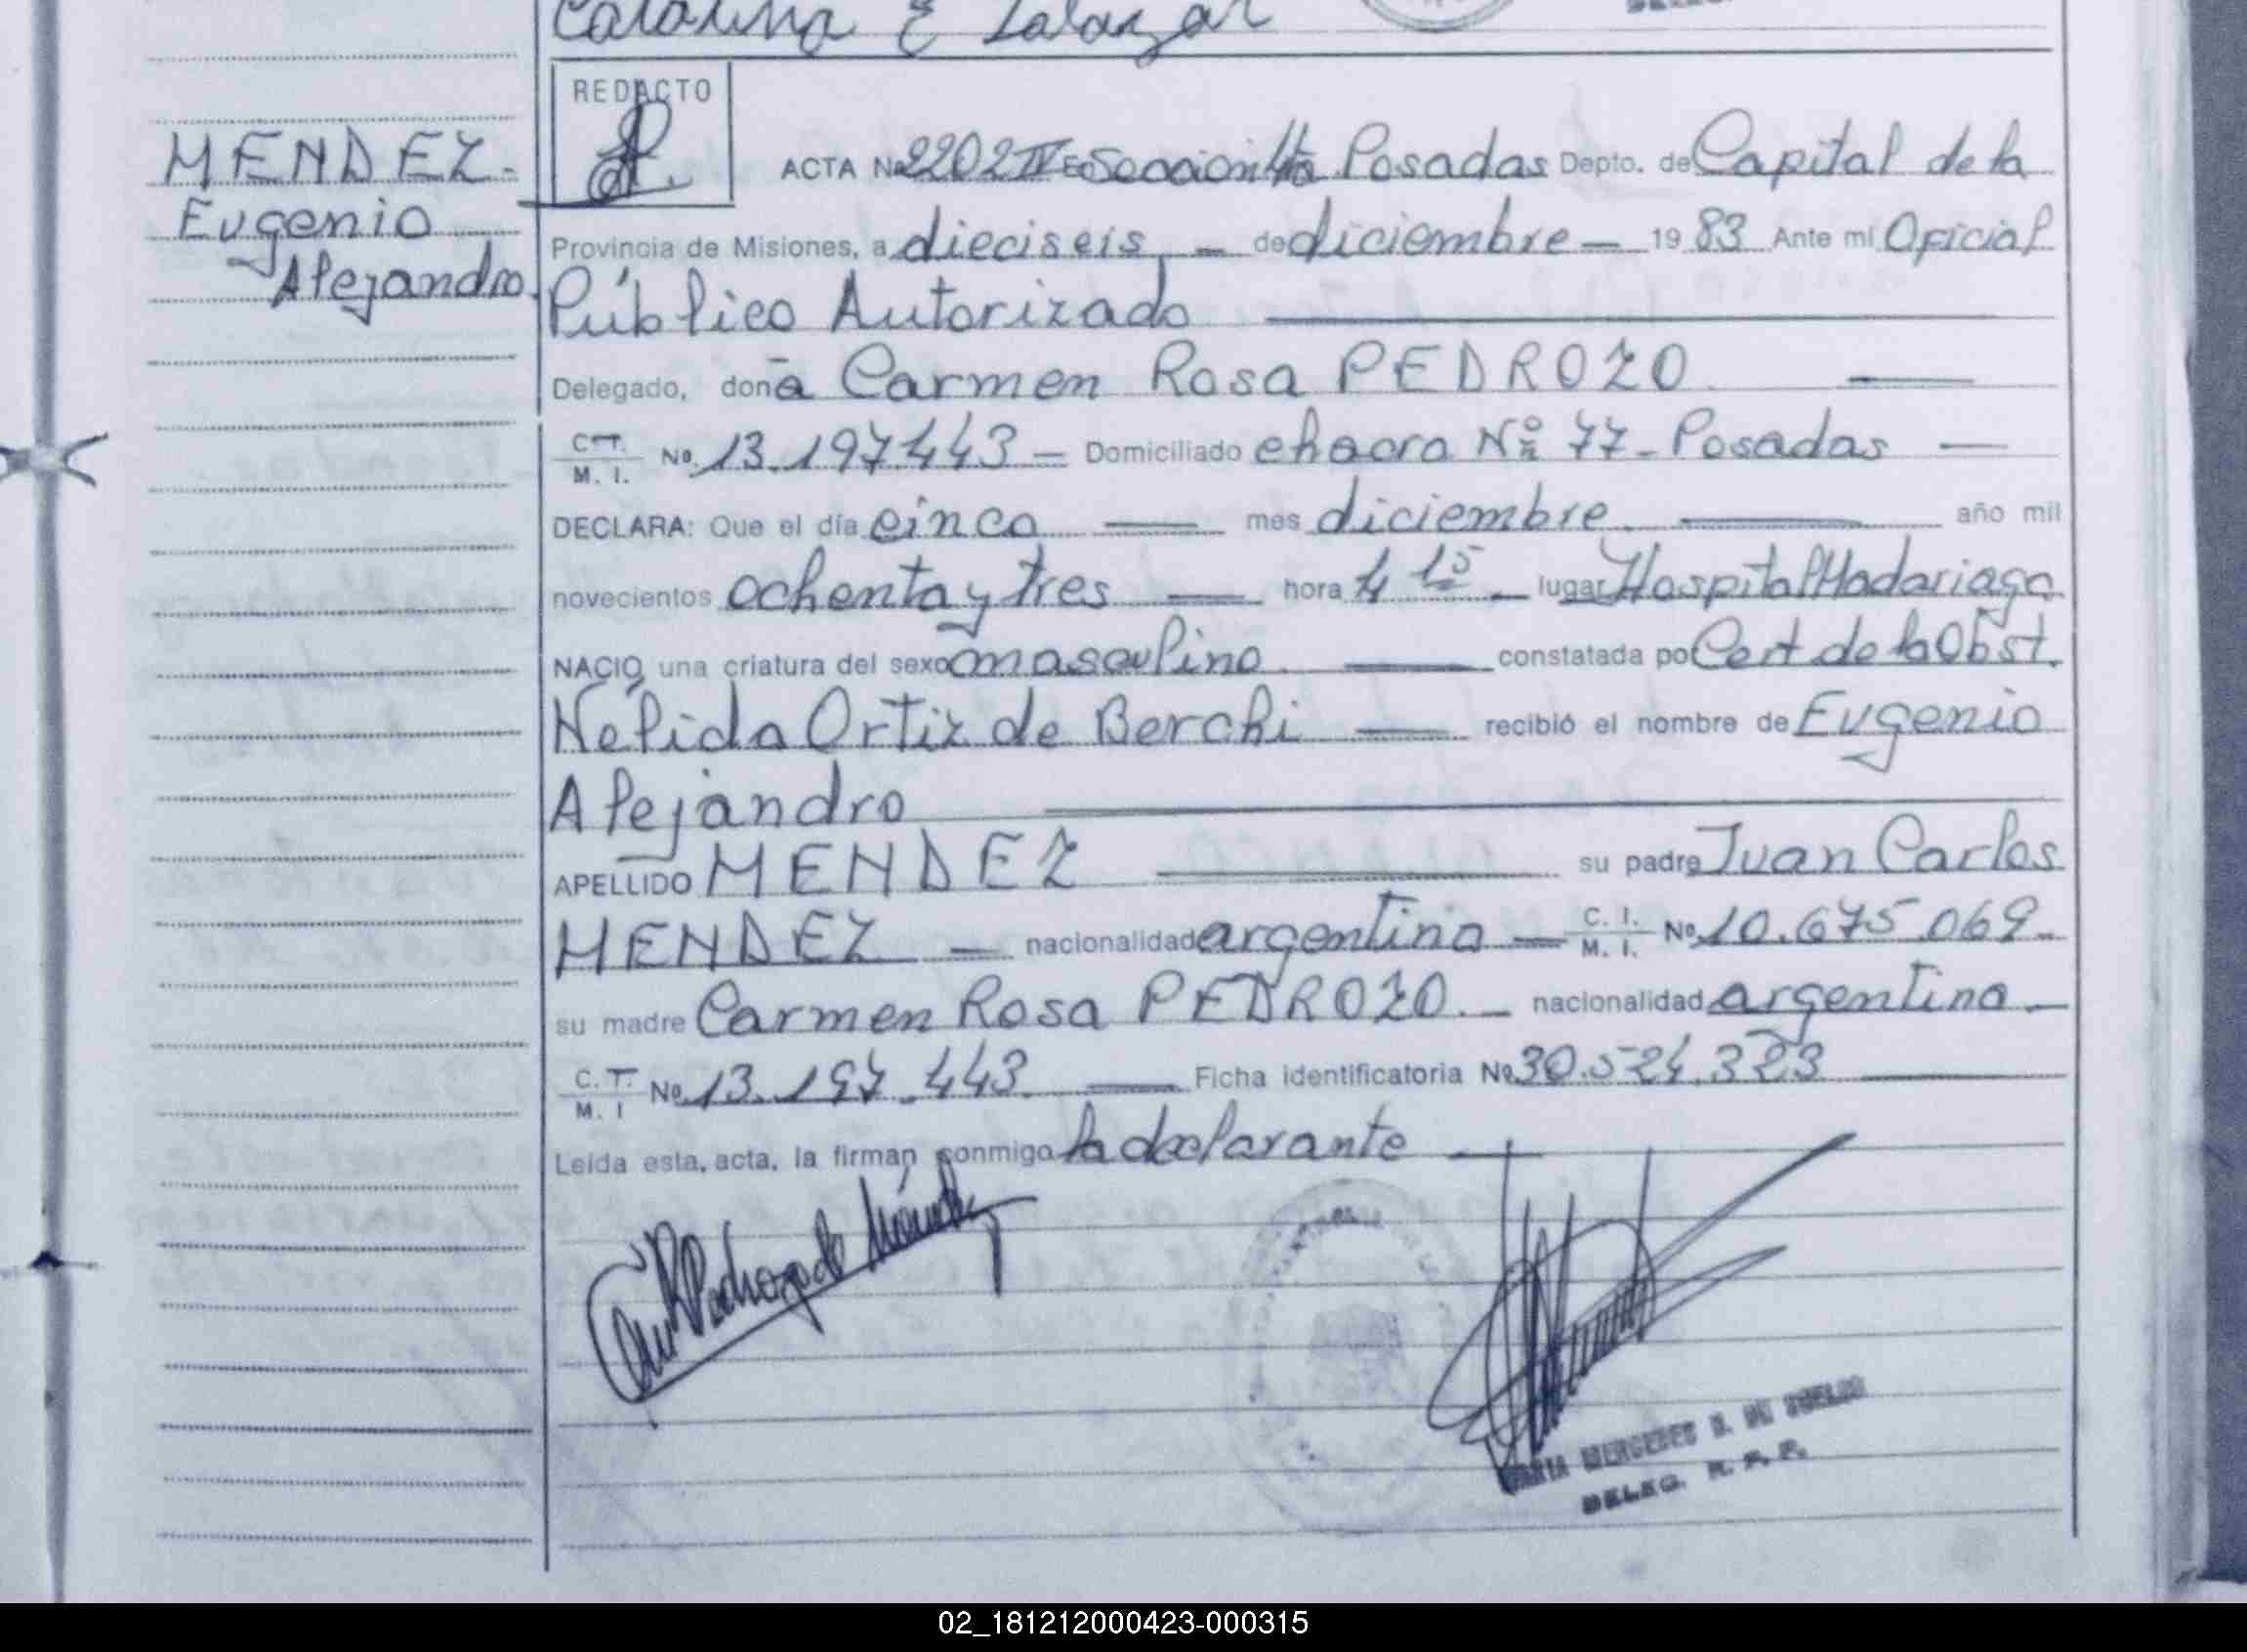 Catalina E Salazar
REDACTO
MENDEZ.
Eugenio
Alejandro.
ACTA Nº 2202 IV Sección 4ta Posadas Depto. de Capital de la
Provincia de Misiones, a dieciseis - de diciembre - 19 83 Ante mi Oficial
Público Autorizado
Delegado, doña Carmen Rosa PEDROZO
C.T. M. I. Nº 13.197443 - Domiciliado chacra Nº 77 - Posadas -
DECLARA: Que el día cinco mes diciembre año mil
novecientos ochenta y tres hora 4 15 lugar Hospital Madariaga
NACIO una criatura del sexo masculino constatada po Cert de la Obst.
Nélida Ortiz de Berchi recibió el nombre de Eugenio
Alejandro
APELLIDO MENDEZ su padre Juan Carlos
MENDEZ - nacionalidad argentina - C. I. M. I. Nº 10.675.069-
su madre Carmen Rosa PEDROZO. - nacionalidad argentina -
C.T. M. I Nº 13.197.443 Ficha identificatoria Nº 30.524.323
Leida esta, acta, la firman conmigo la declarante
Pedrozo de Méndez
MARIA MERCEDES
DELEG. R. P. P.
02_181212000423-000315